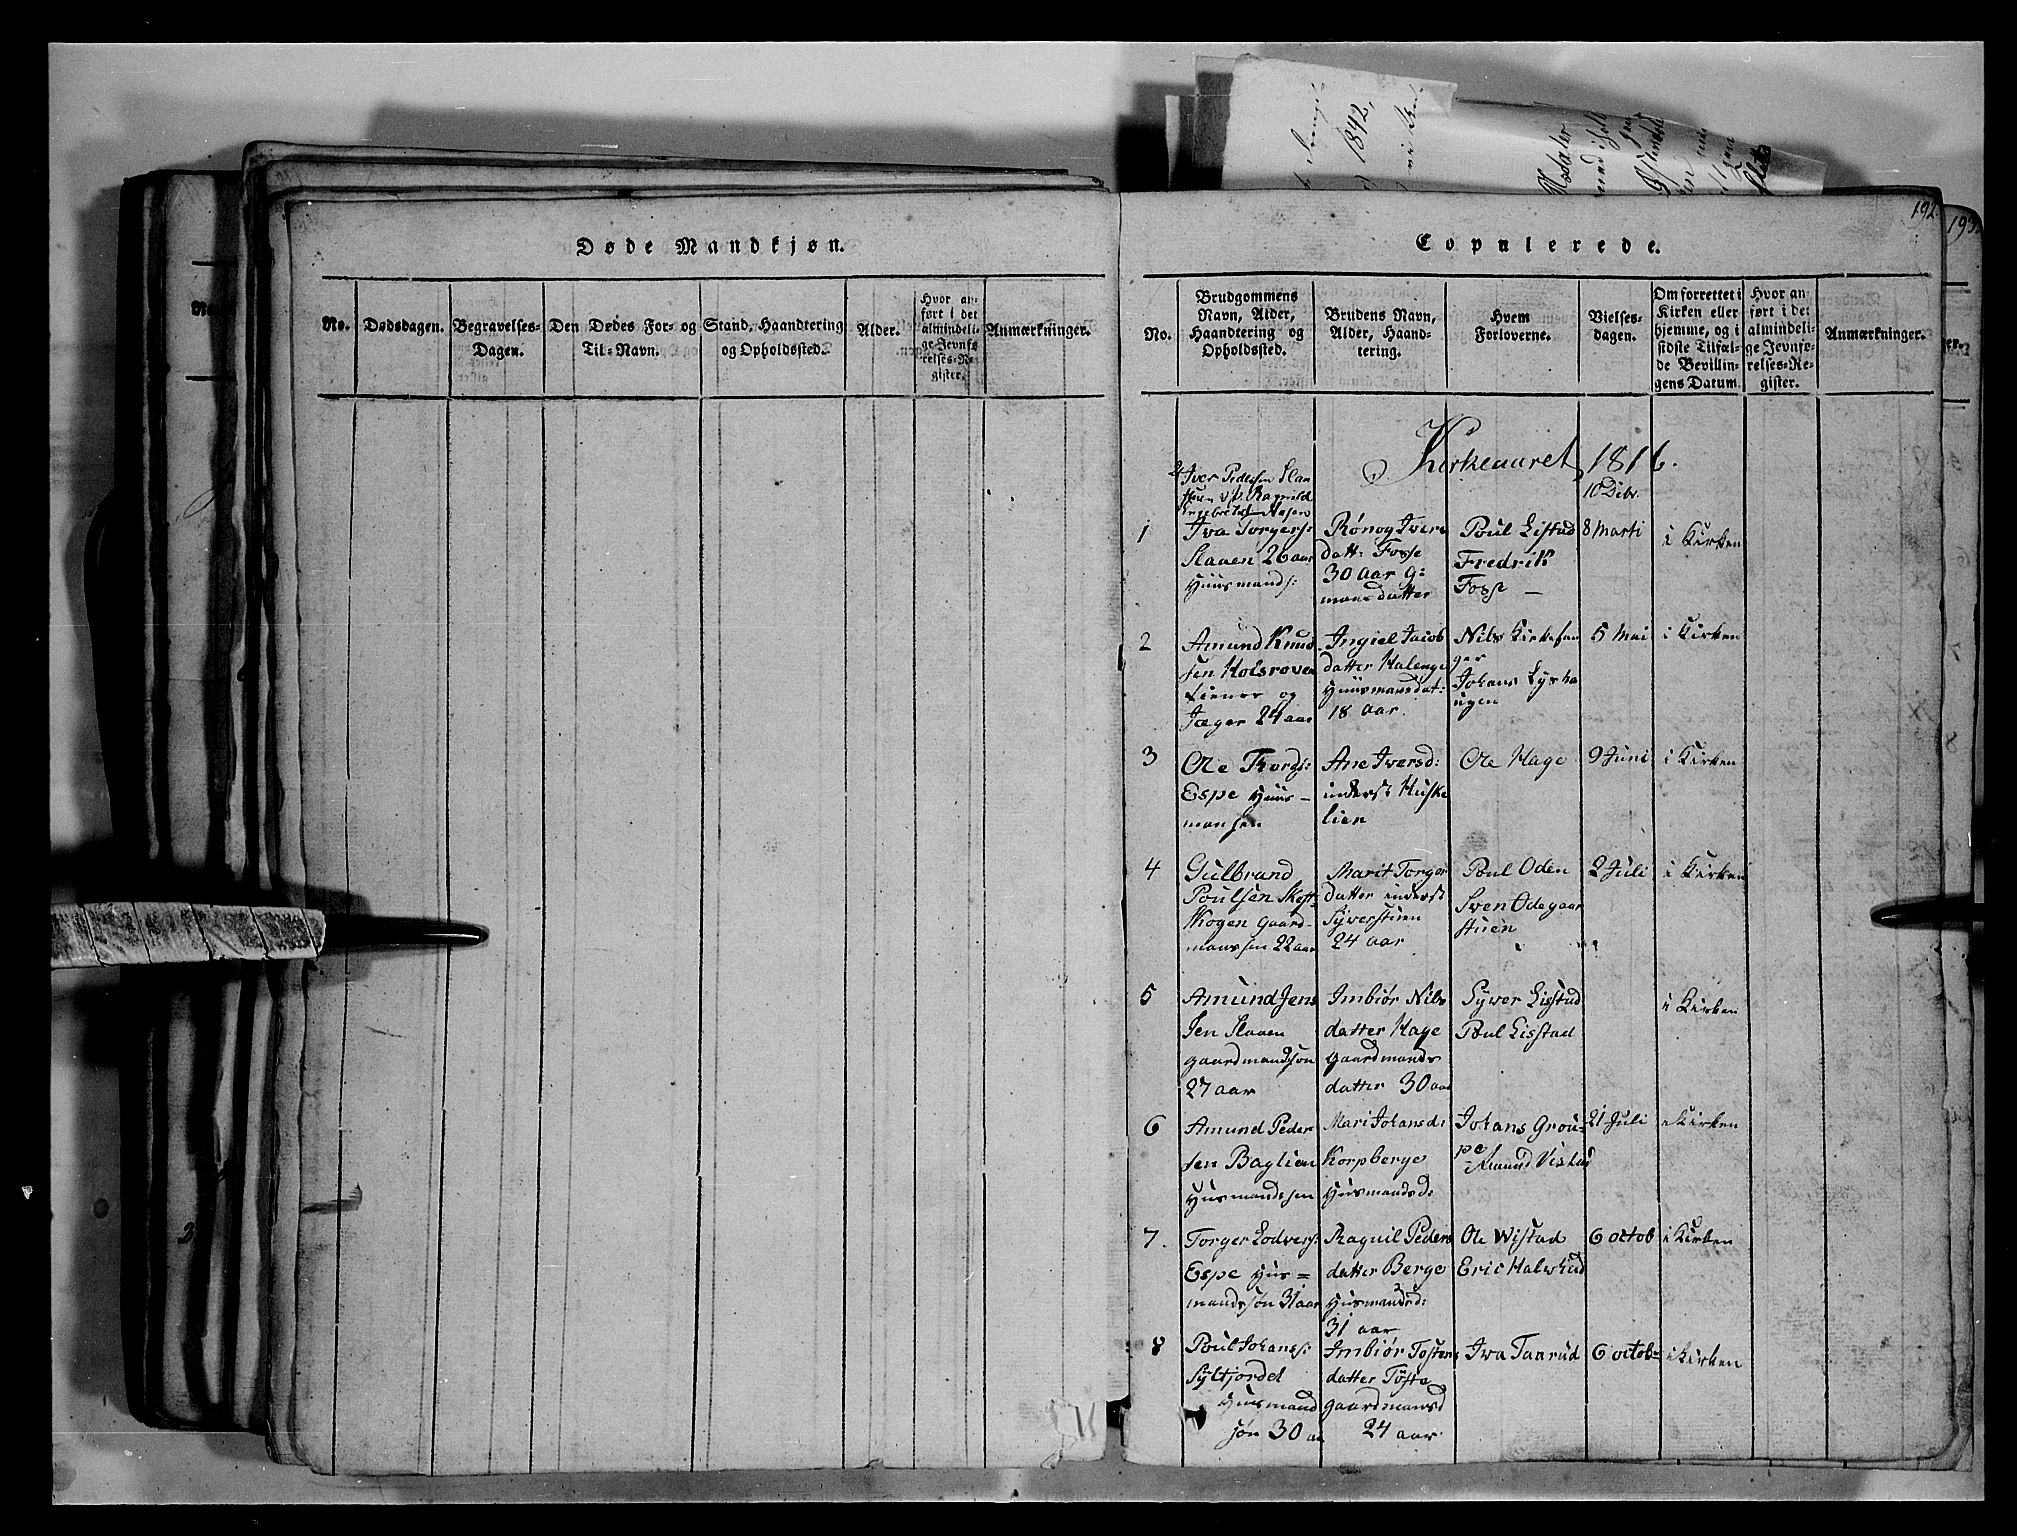 1842,
192
193
Døde Mandkjøn.
No.
Dødsdagen.
Begravelses-
Dagen.
Den Dødes For- og
Til-Navn.
Stand, Haandtering
og Opholdssted.
Alder.
Hvor an-
ført i det
almindeli-
ge Jevnfø-
relses-Re-
gister.
Anmærkninger.
Copulerede.
No.
Brudgommens
Navn, Alder,
Haandtering og
Opholdssted.
Brudens Navn,
Alder, Haand-
tering.
Hvem
Forloverne.
Vielses-
dagen.
Om forrettet i
Kirken eller
hjemme, og i
sidste Tilfæl-
de Bevillin-
gens Datum.
Hvor an-
ført i det
almindeli-
ge Jevnfø-
relses-Re-
gister.
Anmærkninger.
Kirkeaaret 1816.
Iver Pedersen Slaa
Ragnild
10 Debr.
1
Iva Torgers:
Slaaen 26 aar
Huusmands:
Rønog Ivers
datt: Fosse
30 aar g:
mans datter
Poul Listad
Fredrik
Fosse —
8 Marti
i Kirken
2
Amund Knud
sen Holsroven
tiener og
Jæger 24 aar
Ingiel Jacob
datter Kalenge
Huusmansdat:
18 aar.
Nils Kirkestu
ger
Johans Lysha
ugen
5 Mai
i Kirken
3
Ole Thords:
Espe Huus-
mansen
Ane Iversd:
inderst Huske
lien
Ole Hage
9 Juni
i Kirken
4
Gulbrand
Poulsen Skef-
skogen Gaard-
manssen 22 aar
Marit Torger
datter inderst
Sÿwerstuen
24 aar
Poul Oden
Swen Odegaar
stuen
2 Juli
i Kirken
5
Amund Jens
sen Slaaen
gaardmandssøn
27 aar
Imbiør Nils
datter Hage
Gaardmands
datter 30 aar
Sÿwer Lisstad
Poul Lisstad
i Kirken
6
Amund Peder
sen Baglien
Husmandssen
Mari Johansd:
Korpberge
Husmandsd:
Johans Grou-
pe
Amund Vistad
21 Juli
i Kirken
7.
Torger Lodvers:
Espe Hus=
mandssøn 31 aar
Ragnil Peders
datter Berge
Husmandsd:
31 aar
Ole Wistad
Eric Halwstad
6 octob
i Kirken
8
Poul Johans:
Sÿltjordet
Husmand
søn 30 aa
Imbiør Tostens
datter Tofte
gaardmansd
24 aar.
Iva Taarud
6 octob=
i Kirken